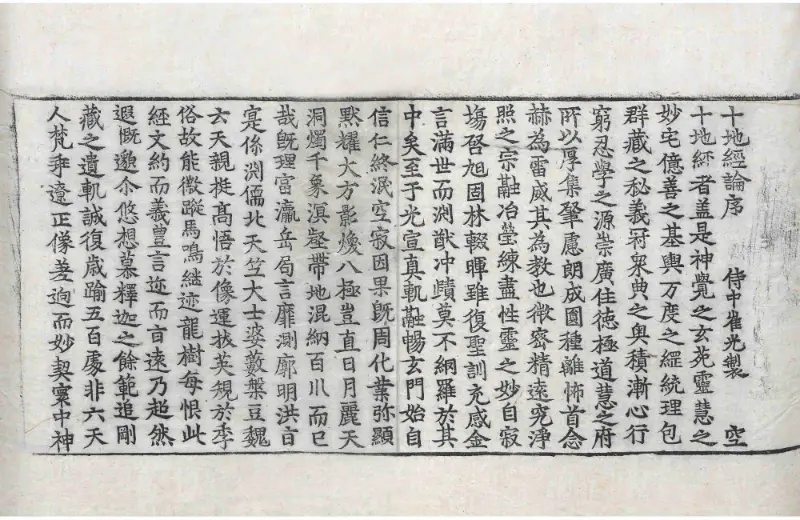 十地經論序　侍中崔光製　空
十地經者盖是神覺之玄苑靈慧之
妙宅億善之基輿万度之綱統理包
群藏之秘義冠衆典之奧積漸心行
窮忍學之源崇廣住德極道慧之府
所以厚集肇慮朗成圓種離怖首念
赫為雷威其為教也微密精遠究淨
照之宗融冶瑩練盡性靈之妙自寂
塲啓旭固林輟暉雖復聖訓充感金
言滿世而渕猷冲賾莫不網羅於其
中矣至于光宣真軌融暢玄門始自
信仁終泯空寂因果旣周化業弥顯
默耀大方影煥八極豈直日月麗天
洞燭千象溟壑帶地混納百川而已
哉旣理富瀛岳局言靡測廓明洪旨
寔係渕儒北天竺大士婆藪槃豆魏
云天親挺髙悟於像運拔英規於季
俗故能徽蹤馬鳴継迹龍樹每恨此
經文約而義豊言迩而旨遠乃超然
遐慨邈尒悠想慕釋迦之餘範追剛
藏之遺軌誠復歲踰五百處非六天
人梵乖遼正像差逈而妙契寰中神